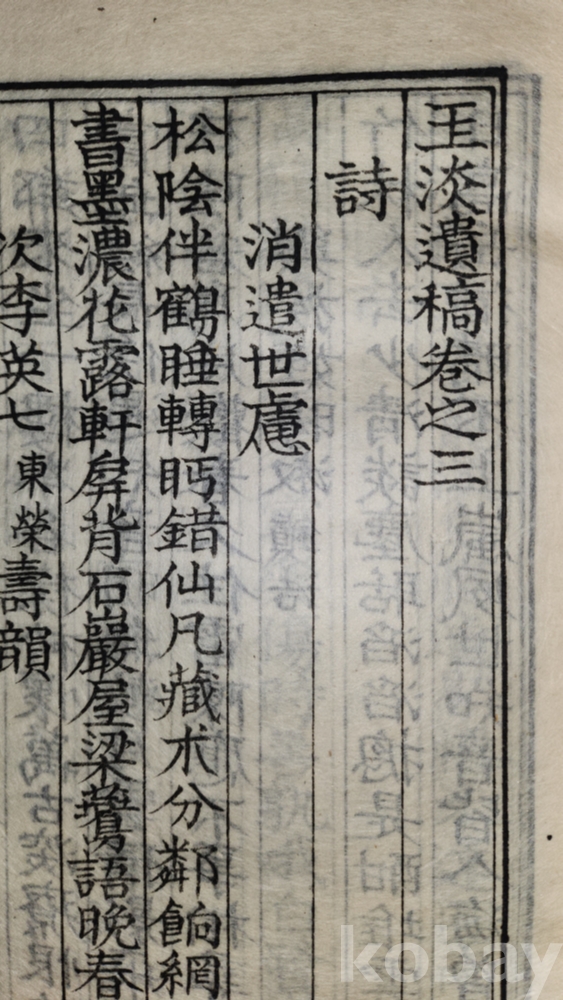 王淡遺稿卷之三
詩
消遣世慮
松陰伴鶴睡轉眄錯仙凡藏朮分鄰餉網
書墨濃花露軒屛背石巖屋梁鷰語晚春
次李英七東榮壽韻
kobay